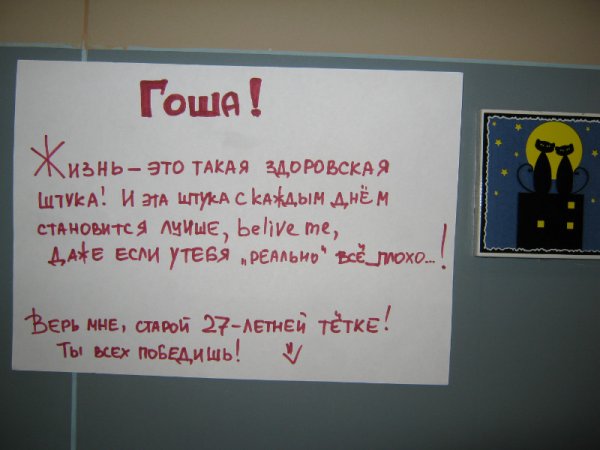 Гоша!
Жизнь – это такая здоровская
штука! И эта штука с каждым днём
становится лучше, belive me,
даже если у тебя „реально" всё плохо...!
Верь мне, старой 27-летней тётке!
Ты всех победишь!